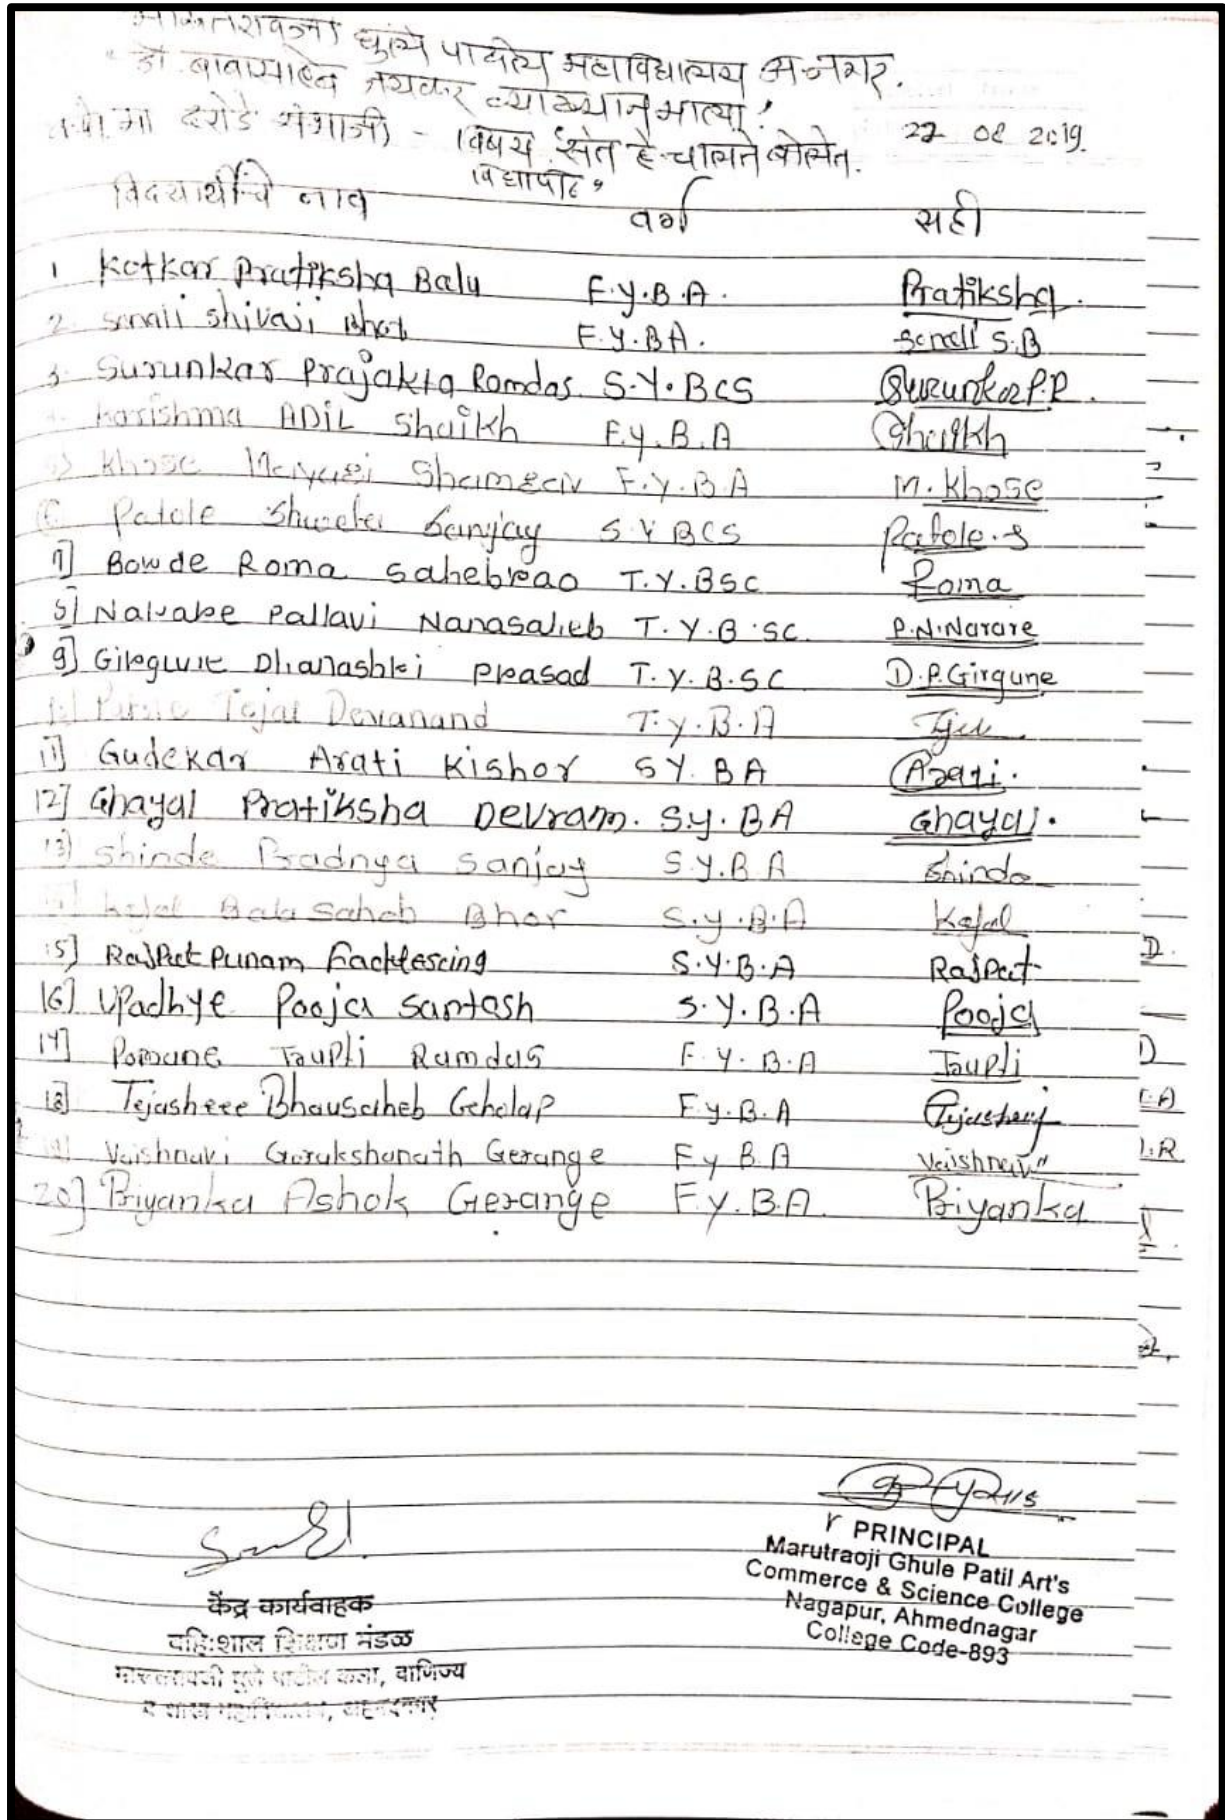 घुले पाटील महाविद्यालय अ.नगर.
"डॉ. बाबासाहेब जयकर व्याख्यानमाला!
विषय संत हे चालते बोलते. 22 08 2019.
विद्यापीठ"
विदयार्थीचे नाव वर्ग सही
1 Kotkar Pratiksha Balu F.Y.B.A. Pratiksha.
2. Sonali Shivaji Bhot F.Y.BA. Sonali S.B
3. Surunkar Prajakta Ramdas. S.Y.BCS Surunkar P.R.
4. Karishma ADIL Shaikh F.Y.B.A Shaikh
5) Khose Shamrav F.Y.B.A M. Khose
6 Patole Shweta Sanjay S.Y BCS Patole.S
7] Bowde Roma Sahebrao T.Y.BSC Roma
8] Narare Pallavi Nanasaheb T.Y.B.SC. P.N.Narare
9] Girgune Dhanashri Prasad T.Y.B.SC D.P.Girgune
10] Tejal Devanand T.Y.B.A Teju
11] Gudekar Arati Kishor S Y. BA Arati.
12] Ghayal Pratiksha Devram. S.Y.BA Ghayal.
13) Shinde Pradnya Sanjay S.Y.B.A Shinde
14] Kajal Balasaheb Bhor S.Y.B.A Kajal
15] Rajput Punam S.Y.B.A Rajput
16] Upadhye Pooja Santosh S.Y.B.A Pooja
17] Pomane Trupti Ramdas F.Y.B.A Trupti
18] Tejashree Bhausaheb Gholap F.Y.B.A Tejashree
19] Vaishnavi Gorakshanath Gerange F Y B.A Vaishnavi
20] Priyanka Ashok Gerange F.Y.B.A. Priyanka
PRINCIPAL
Marutraoji Ghule Patil Art's
Commerce & Science College
Nagapur, Ahmednagar
College Code-893
केंद्र कार्यवाहक
बहि:शाल शिक्षण मंडळ
मारुतरावजी घुले पाटील कला, वाणिज्य
व शास्त्र महाविद्यालय, अहमदनगर